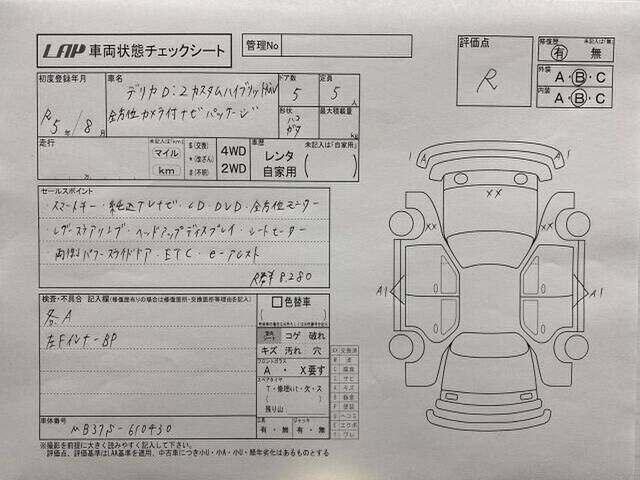 LAP 車両状態チェックシート
管理No
評価点
R
修復歴 未記入は「無」
有 ・ 無
外装 A・B・C
内装 A・B・C
初度登録年月
R5年/8月
車名
デリカD:2カスタムハイブリッドMV
全方位カメラ付ナビパッケージ
ドア数
5
定員
5人
形状
ハコ
最大積載量
kg
走行
未記入は「km」
マイル
km
$(交換)
*(改ざん)
#(不明)
4WD
2WD
車歴 未記入は「自家用」
レンタ
自家用
セールスポイント
・スマートキー・純正ナビ・CD・DVD・全方位モニター
・レザーステアリング・ヘッドアップディスプレイ・シートヒーター
・両側パワースライドドア・ETC・e-アシスト
R券¥8,280
検査・不具合 記入欄(修復歴有りの場合は修復箇所・交換箇所等理由を記入)
各A
左FインナーBP
色替車
コゲ 破れ
キズ 汚れ 穴
フロントガラス
A ・ X要す
スペアタイヤ
T・修理kit・欠・ス
残り山
工具
有・無
ジャッキ
有・無
車体番号
MB37S-610430
※撮影を前提に大きく読みやすく記入して下さい。
評価点、評価基準はLAA基準を適用、中古車につき小U・小A・小U・経年劣化はあるものとする
XX 交換済
1
A
1
XX
XX
XX
A1
A1